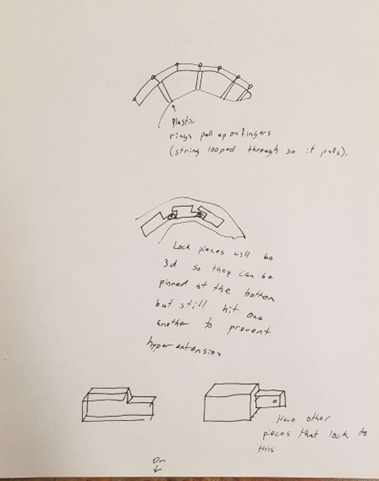 Plastic
rings pull up on fingers
(string looped through so it pulls).
Lock pieces will be
3d so they can be
pinned at the bottom
but still hit one
another to prevent
hyper extension
Have other
pieces that lock to
this
On